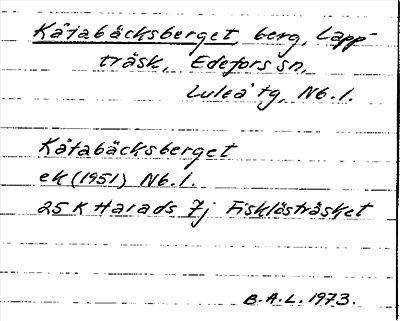 Kåtabäcksberget, berg, Lapp-
träsk, Edefors sn,
Luleå tg, Nb.l.
Kåtabäcksberget
ek (1951) Nb.l.
25 K Harads 7j Fisklösträsket
B.A.L. 1973.